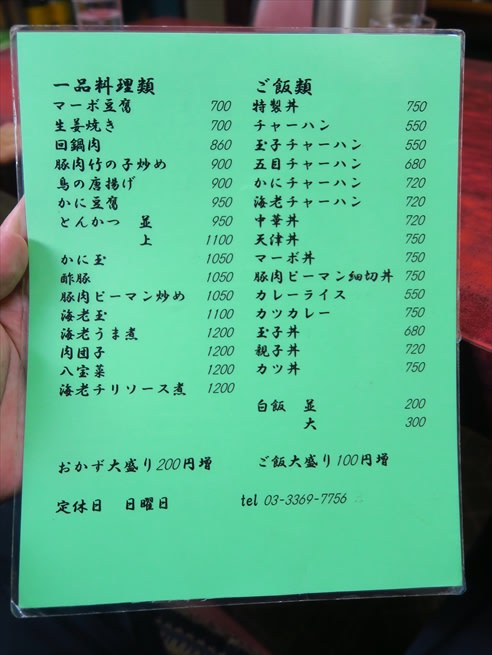 一品料理類
マーボ豆腐 700
生姜焼き 700
回鍋肉 860
豚肉竹の子炒め 900
鳥の唐揚げ 900
かに豆腐 950
とんかつ 並 950
上 1100
かに玉 1050
酢豚 1050
豚肉ピーマン炒め 1050
海老玉 1100
海老うま煮 1200
肉団子 1200
八宝菜 1200
海老チリソース煮 1200
おかず大盛り200円増
ご飯類
特製丼 750
チャーハン 550
玉子チャーハン 550
五目チャーハン 680
かにチャーハン 720
海老チャーハン 720
中華丼 720
天津丼 750
マーボ丼 750
豚肉ピーマン細切丼 750
カレーライス 550
カツカレー 750
玉子丼 680
親子丼 720
カツ丼 750
白飯 並 200
大 300
ご飯大盛り100円増
定休日 日曜日
tel 03-3369-7756